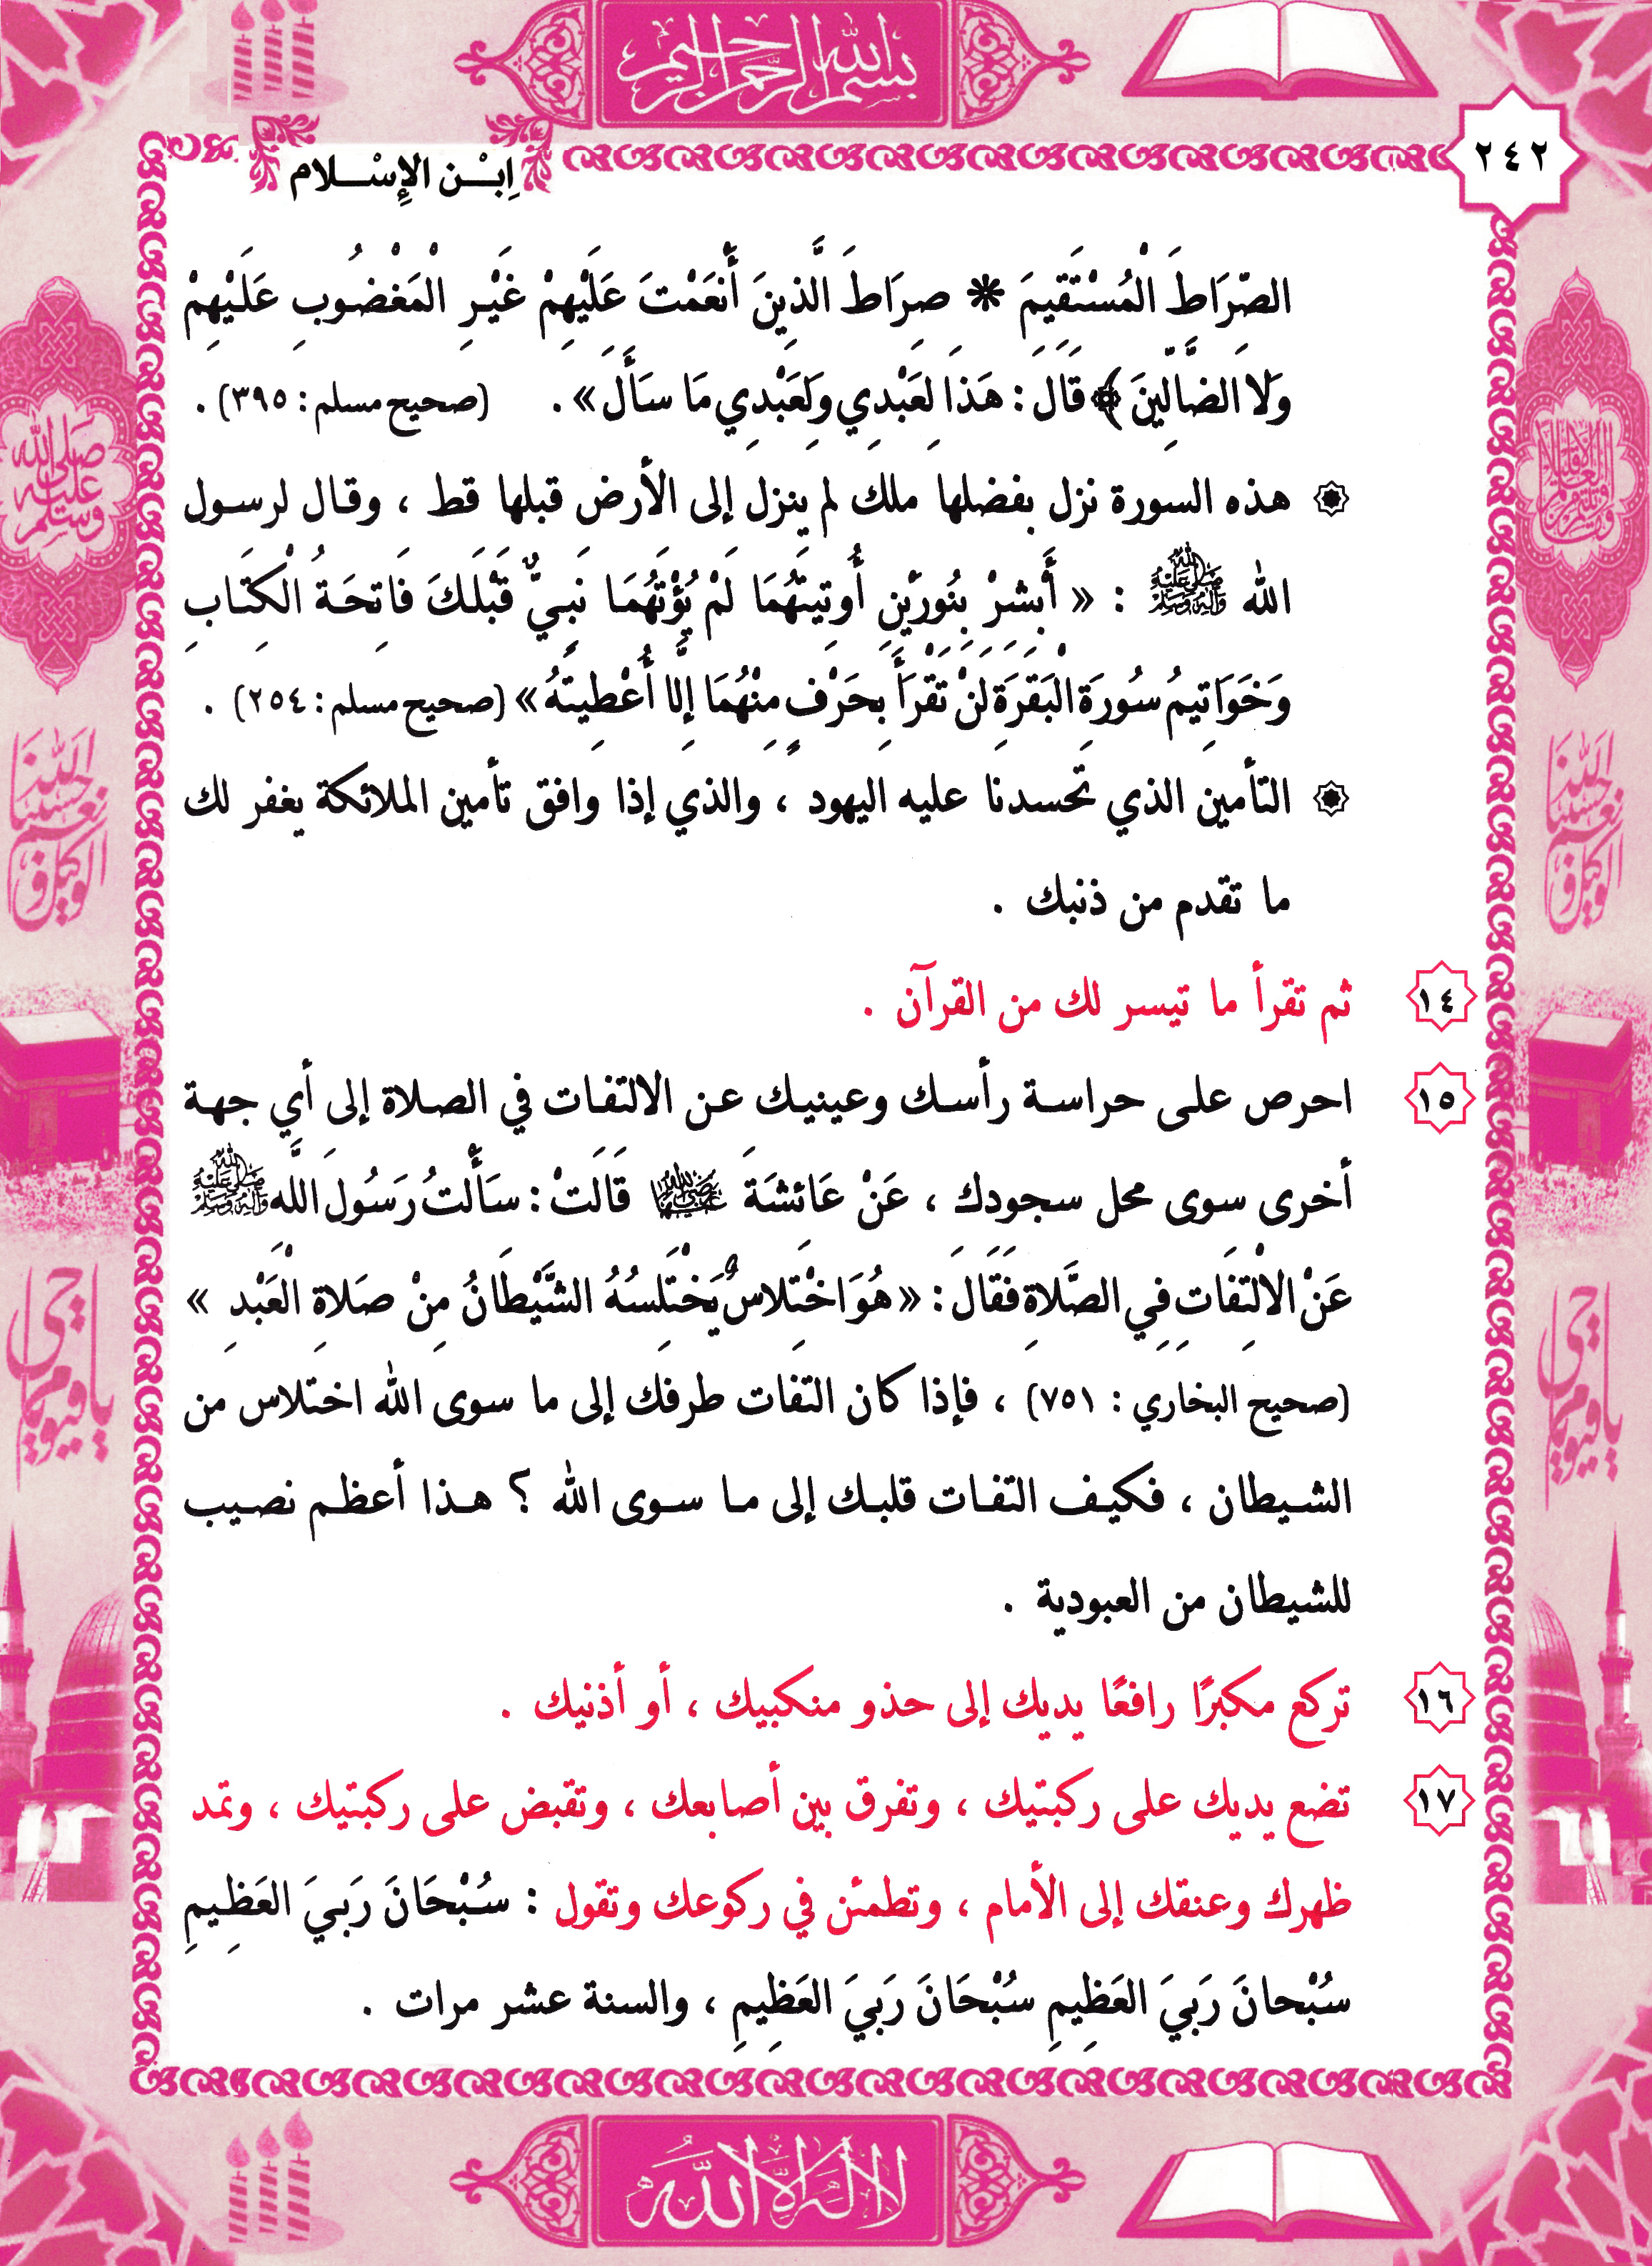 بسم الله الرحمن الرحيم
٢٤٢
اِبْـــن الإِسْـــلام
الصِّرَاطَ الْمُسْتَقِيمَ * صِرَاطَ الَّذِينَ أَنْعَمْتَ عَلَيْهِمْ غَيْرِ الْمَغْضُوبِ عَلَيْهِمْ
وَلَا الضَّالِّينَ ﴾ قَالَ : هَذَا لِعَبْدِي وَلِعَبْدِي مَا سَأَلَ » . (صحيح مسلم : ٣٩٥) .
هذه السورة نزل بفضلها ملك لم ينزل إلى الأرض قبلها قط ، وقال لرسول
الله ﷺ : « أَبْشِرْ بِنُورَيْنِ أُوتِيتَهُمَا لَمْ يُؤْتَهُمَا نَبِيٌّ قَبْلَكَ فَاتِحَةُ الْكِتَابِ
وَخَوَاتِيمُ سُورَةِ الْبَقَرَةِ لَنْ تَقْرَأَ بِحَرْفٍ مِنْهُمَا إِلَّا أُعْطِيتَهُ » (صحيح مسلم : ٢٥٤) .
التأمين الذي تحسدنا عليه اليهود ، والذي إذا وافق تأمين الملائكة يغفر لك
ما تقدم من ذنبك .
١٤ ثم تقرأ ما تيسر لك من القرآن .
١٥ احرص على حراسة رأسك وعينيك عن الالتفات في الصلاة إلى أي جهة
أخرى سوى محل سجودك ، عَنْ عَائِشَةَ رضي الله عنها قَالَتْ : سَأَلْتُ رَسُولَ اللَّهِ ﷺ
عَنْ الِالْتِفَاتِ فِي الصَّلَاةِ فَقَالَ : « هُوَ اخْتِلَاسٌ يَخْتَلِسُهُ الشَّيْطَانُ مِنْ صَلَاةِ الْعَبْدِ »
(صحيح البخاري : ٧٥١) ، فإذا كان التفات طرفك إلى ما سوى الله اختلاس من
الشيطان ، فكيف التفات قلبك إلى ما سوى الله ؟ هذا أعظم نصيب
للشيطان من العبودية .
١٦ تركع مكبرًا رافعًا يديك إلى حذو منكبيك ، أو أذنيك .
١٧ تضع يديك على ركبتيك ، وتفرق بين أصابعك ، وتقبض على ركبتيك ، وتمد
ظهرك وعنقك إلى الأمام ، وتطمئن في ركوعك وتقول : سُبْحَانَ رَبِيَ العَظِيمِ
سُبْحانَ رَبِيَ العَظِيمِ سُبْحَانَ رَبِيَ العَظِيمِ ، والسنة عشر مرات .
لا إله إلا الله
صلى الله عليه وسلم
حسبنا الله ونعم الوكيل
يا حي يا قيوم
حسبنا الله ونعم الوكيل
يا حي يا قيوم